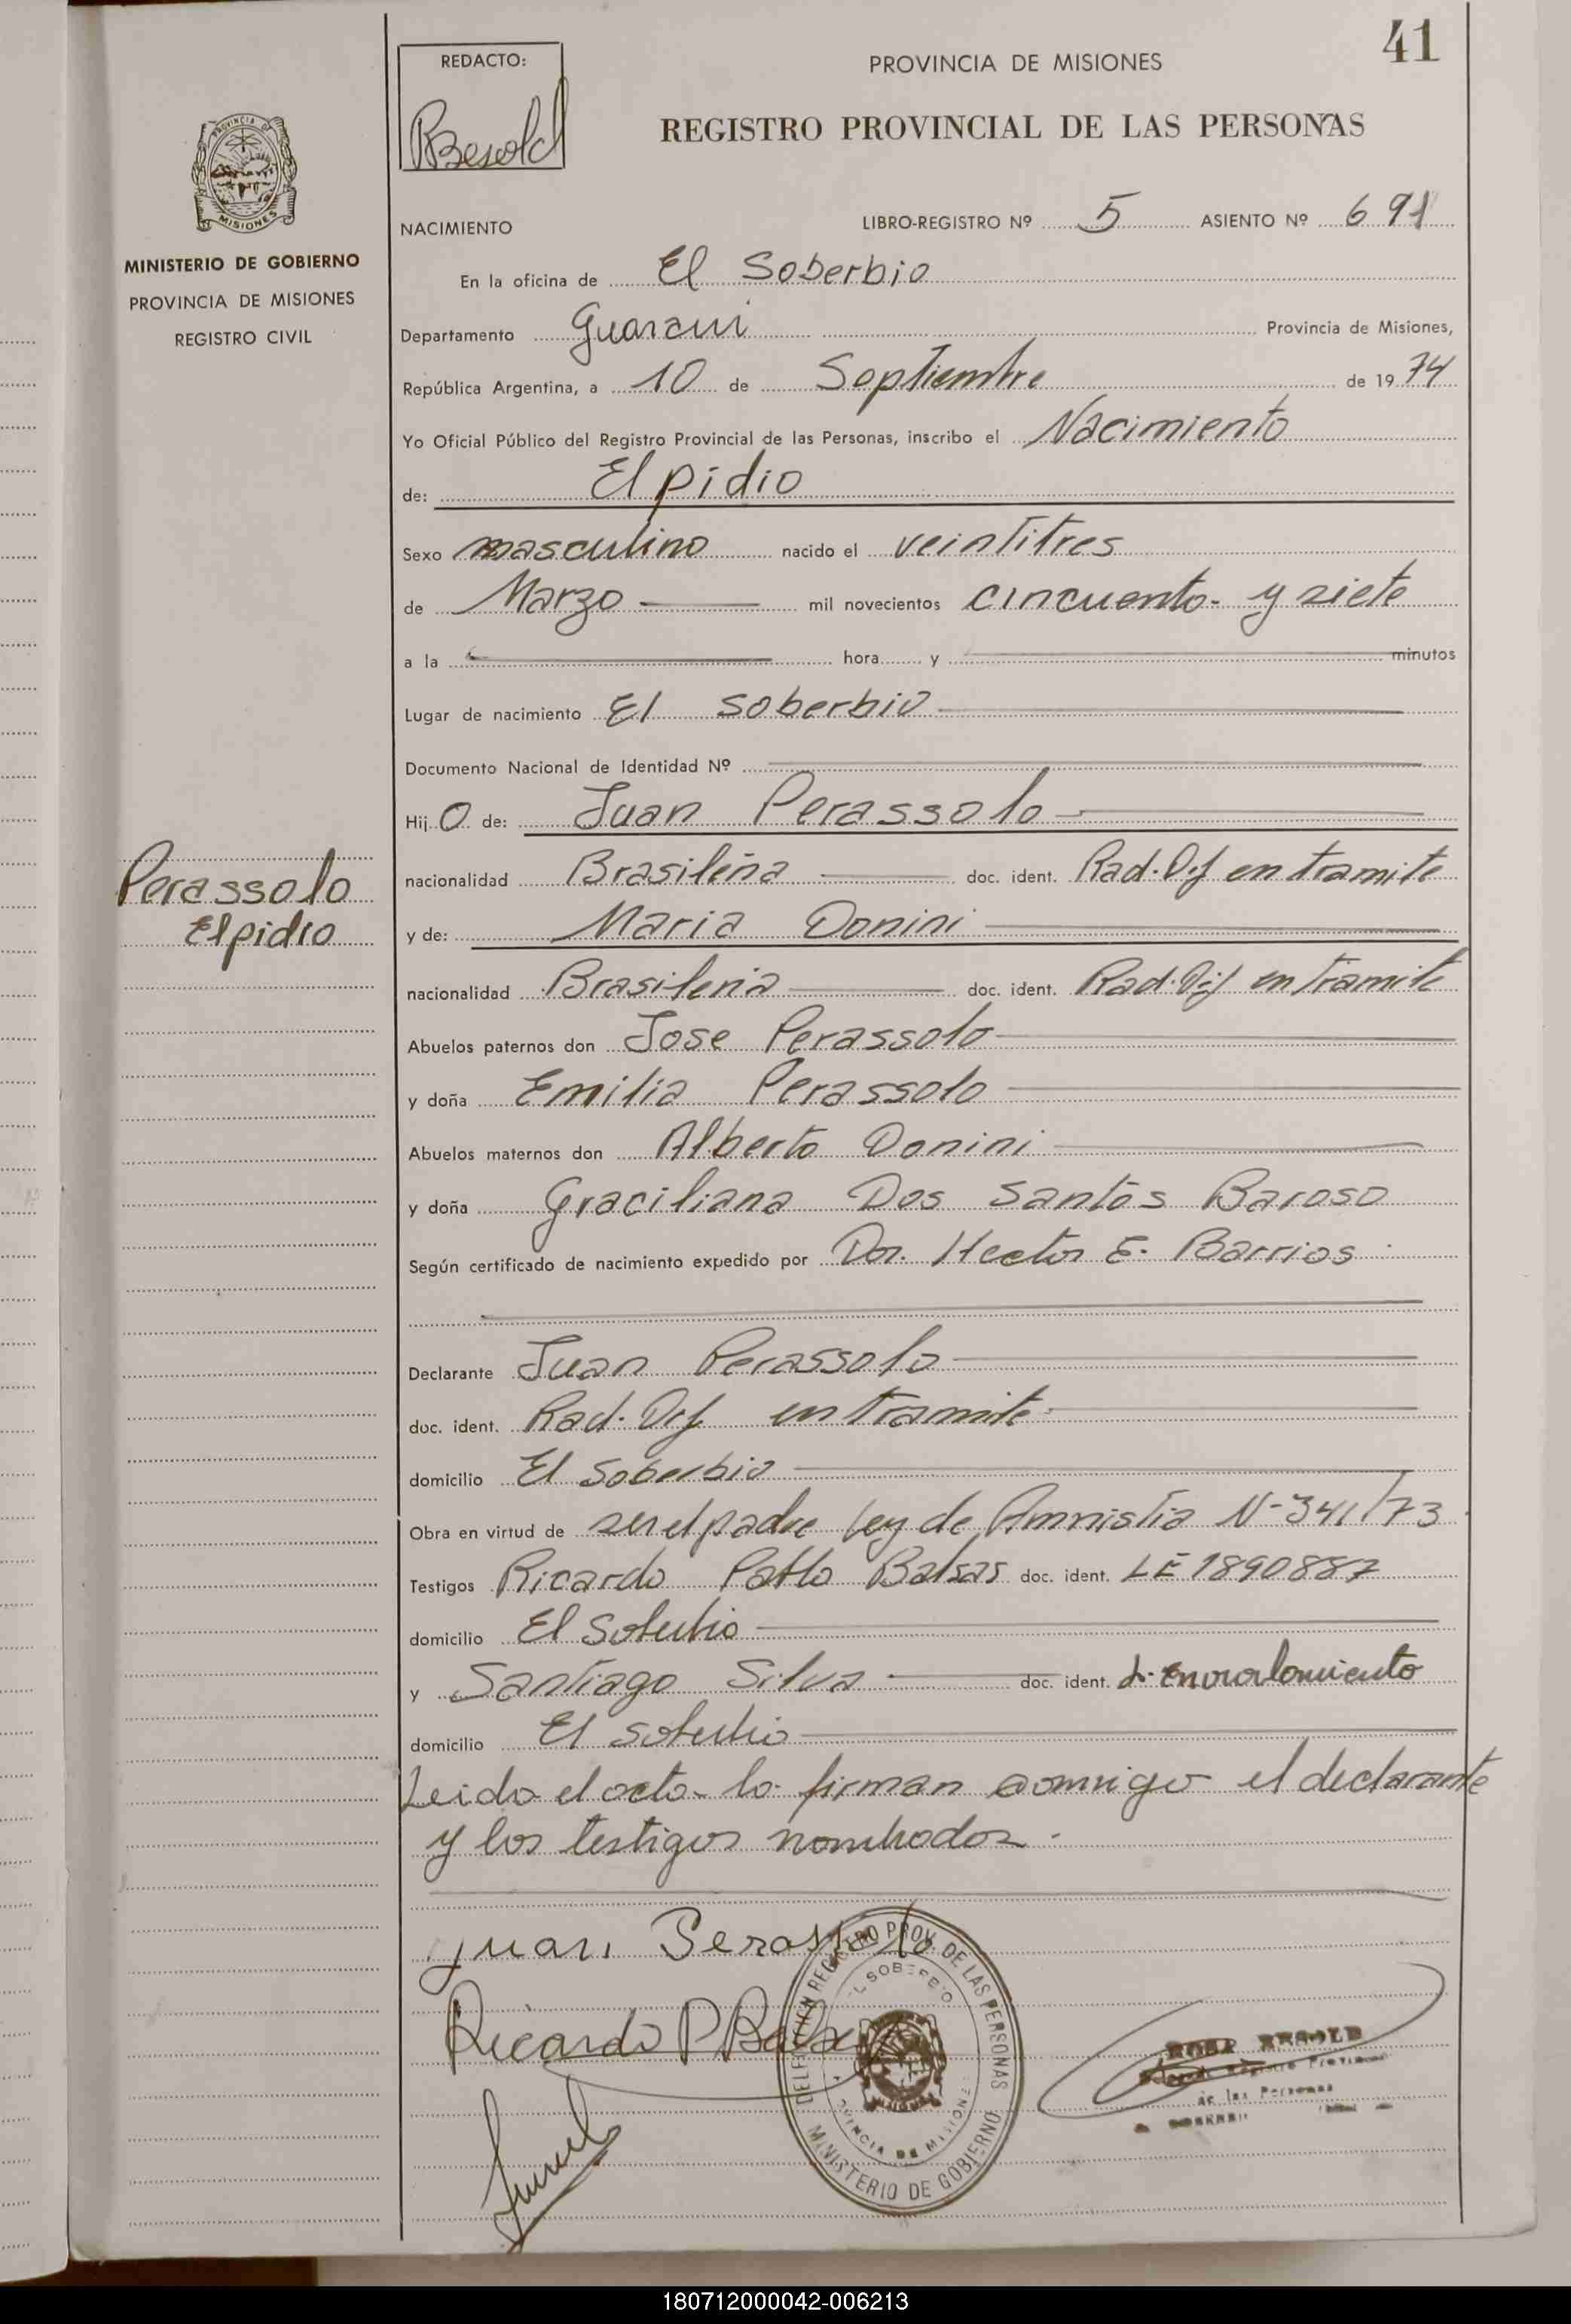 41
REDACTO:
Besold
PROVINCIA DE MISIONES
REGISTRO PROVINCIAL DE LAS PERSONAS
PROVINCIA DE
MISIONES
MINISTERIO DE GOBIERNO
PROVINCIA DE MISIONES
REGISTRO CIVIL
NACIMIENTO LIBRO-REGISTRO Nº 5 ASIENTO Nº 691
En la oficina de El Soberbio
Departamento Guarani Provincia de Misiones,
República Argentina, a 10 de Septiembre de 1974
Yo Oficial Público del Registro Provincial de las Personas, inscribo el Nacimiento
de: Elpidio
Sexo masculino nacido el veintitres
de Marzo mil novecientos cincuenta y siete
a la hora y minutos
Lugar de nacimiento El Soberbio
Documento Nacional de Identidad Nº
Hijo de: Juan Perassolo
Perassolo
Elpidio
nacionalidad Brasileña doc. ident. Rad. Def en tramite
y de: Maria Donini
nacionalidad Brasileña doc. ident. Rad. Def en tramite
Abuelos paternos don Jose Perassolo
y doña Emilia Perassolo
Abuelos maternos don Alberto Donini
y doña Graciliana Dos Santos Baroso
Según certificado de nacimiento expedido por Dor. Hector E. Barrios
Declarante Juan Perassolo
doc. ident. Rad. Def en tramite
domicilio El Soberbio
Obra en virtud de ser el padre Ley de Amnistia Nº 341/73
Testigos Ricardo Pablo Balsas doc. ident. LE 1890887
domicilio El Soberbio
y Santiago Silva doc. ident. L. Enrrolamiento
domicilio El Soberbio
Leido el acto lo firman conmigo el declarante
y los testigos nombrados.
Juan Perassolo
Ricardo P Balsas
DELEGACION REGISTRO PROV. DE LAS PERSONAS
EL SOBERBIO
PROVINCIA DE MISIONES
MINISTERIO DE GOBIERNO
ROSA BESOLD
Registro Provincial
de las Personas
180712000042-006213